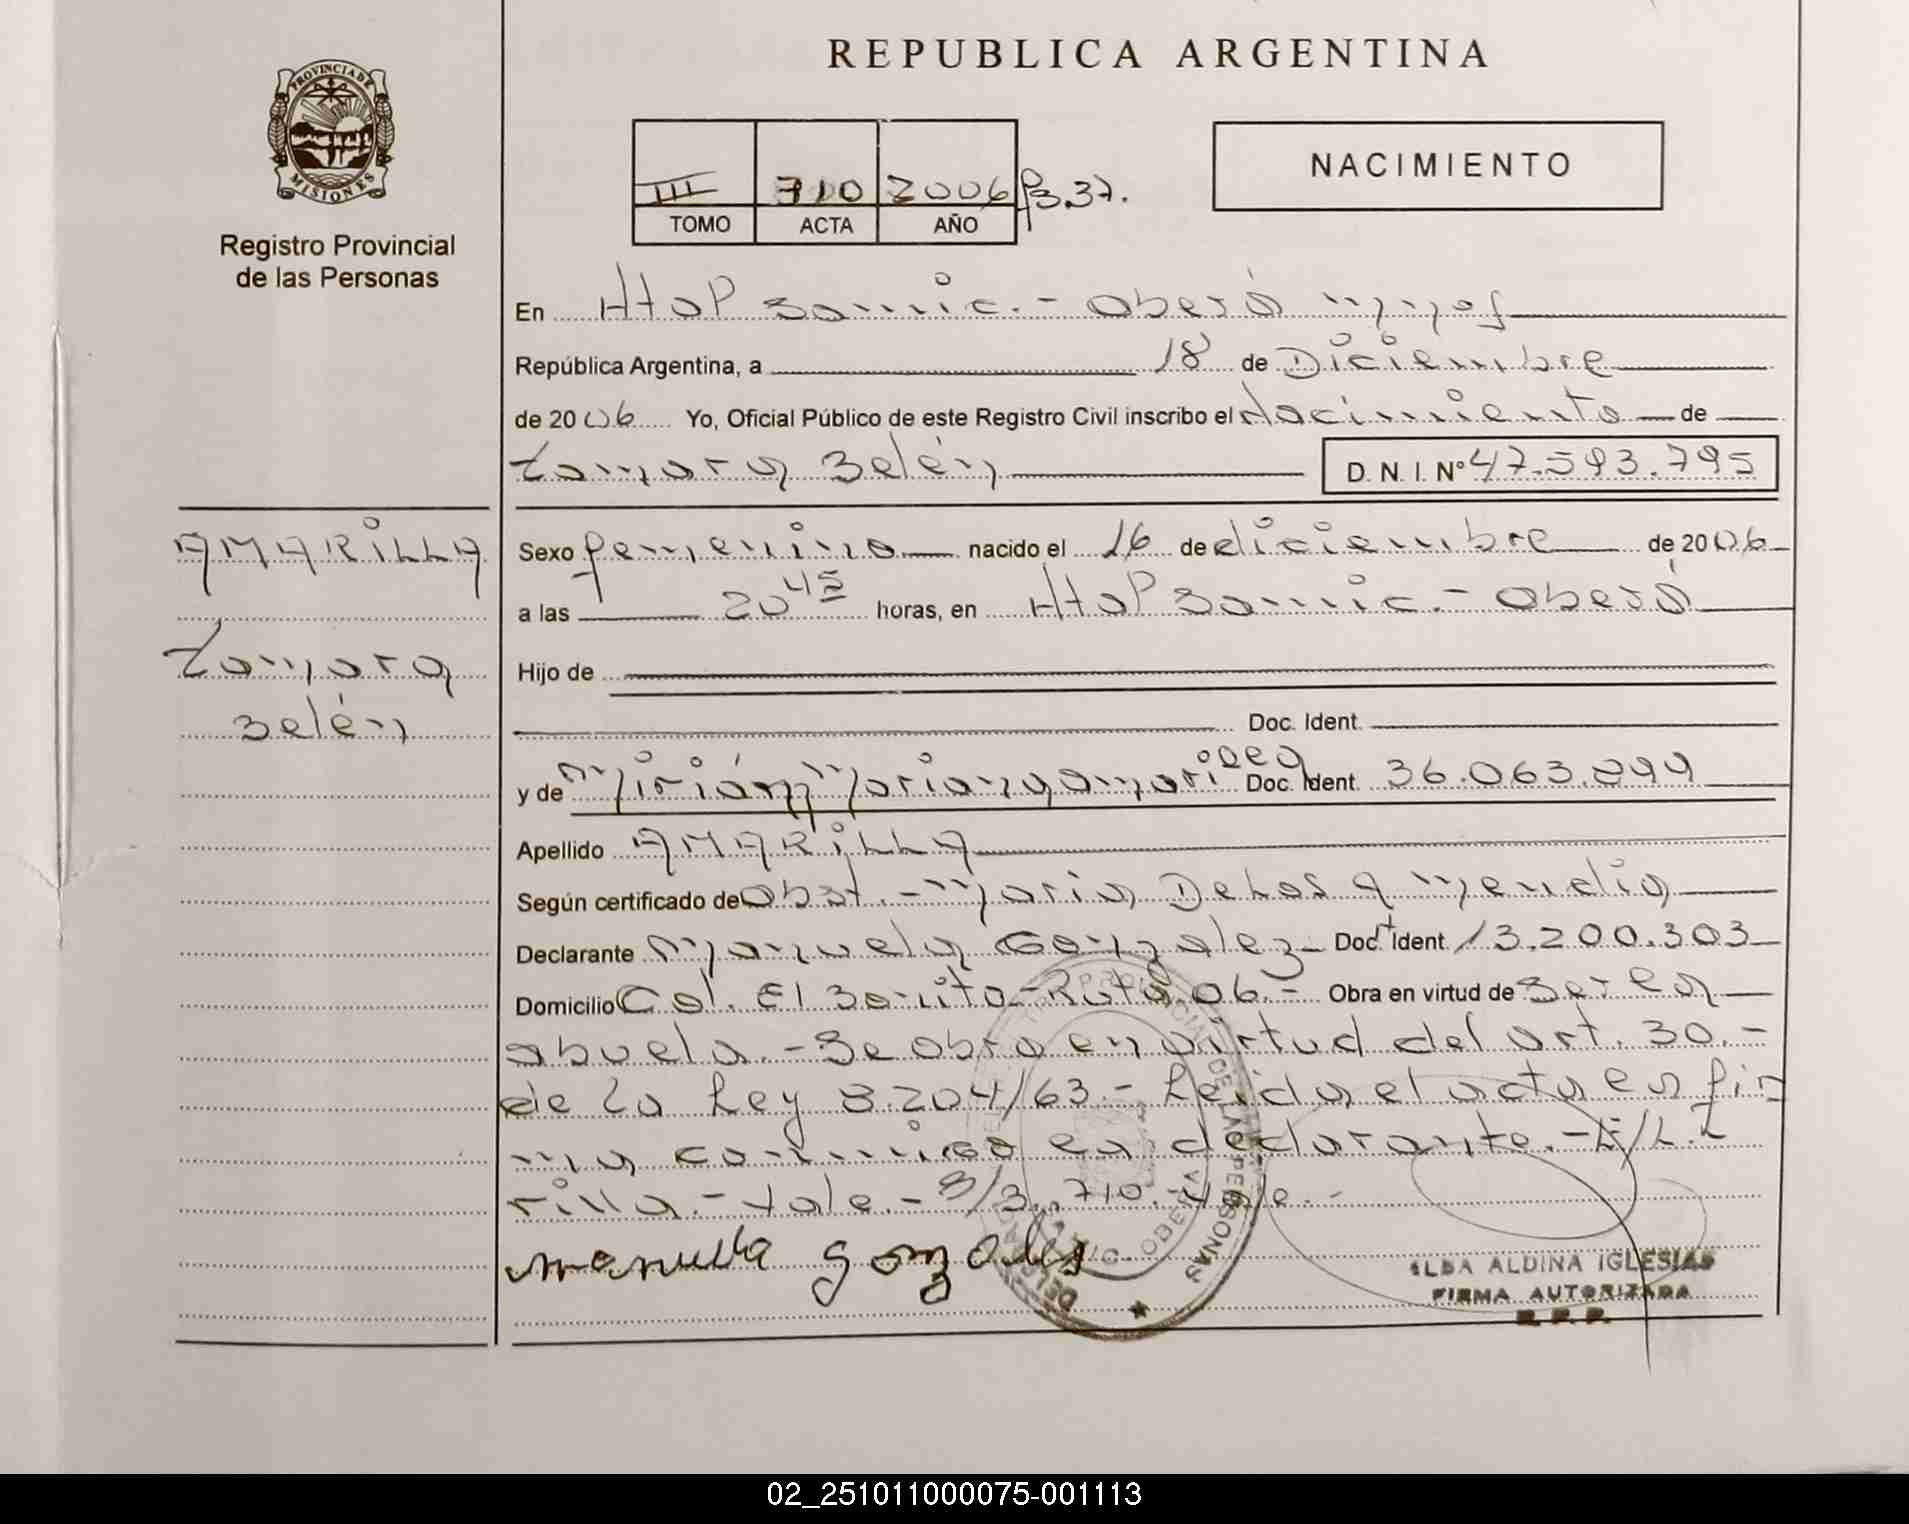 REPUBLICA ARGENTINA
PROVINCIA DE
MISIONES
Registro Provincial
de las Personas
III 710 2006 F3.37.
TOMO ACTA AÑO
NACIMIENTO
En Htal Samic.- Oberá Mnes
República Argentina, a 18 de Diciembre
de 2006 Yo, Oficial Público de este Registro Civil inscribo el Nacimiento de
Tamara Belén D. N. I. N° 47.593.795
AMARILLA
Tamara
Belén
Sexo femenino nacido el 16 de diciembre de 2006
a las 20 45 horas, en Htal Samic.- Oberá
Hijo de
Doc. Ident.
y de Mirián Doc. Ident. 36.063.899
Apellido AMARILLA
Según certificado de Obst.- Maria De Los A Mendia
Declarante Manuela Gonzalez Doc. Ident. 13.200.303
Domicilio Col. El Bonito-Ruta 06.- Obra en virtud de Ser la
abuela.- Se obra en virtud del art. 30.-
de la Ley 8.204/63.- Leida el acta la fir
ma conmigo la declarante.- E/L.I
rilla.- Vale.- S/R. 710.- Vale.-
manuela gonzales
ELBA ALDINA IGLESIAS
FIRMA AUTORIZADA
R. P. P.
02_251011000075-001113